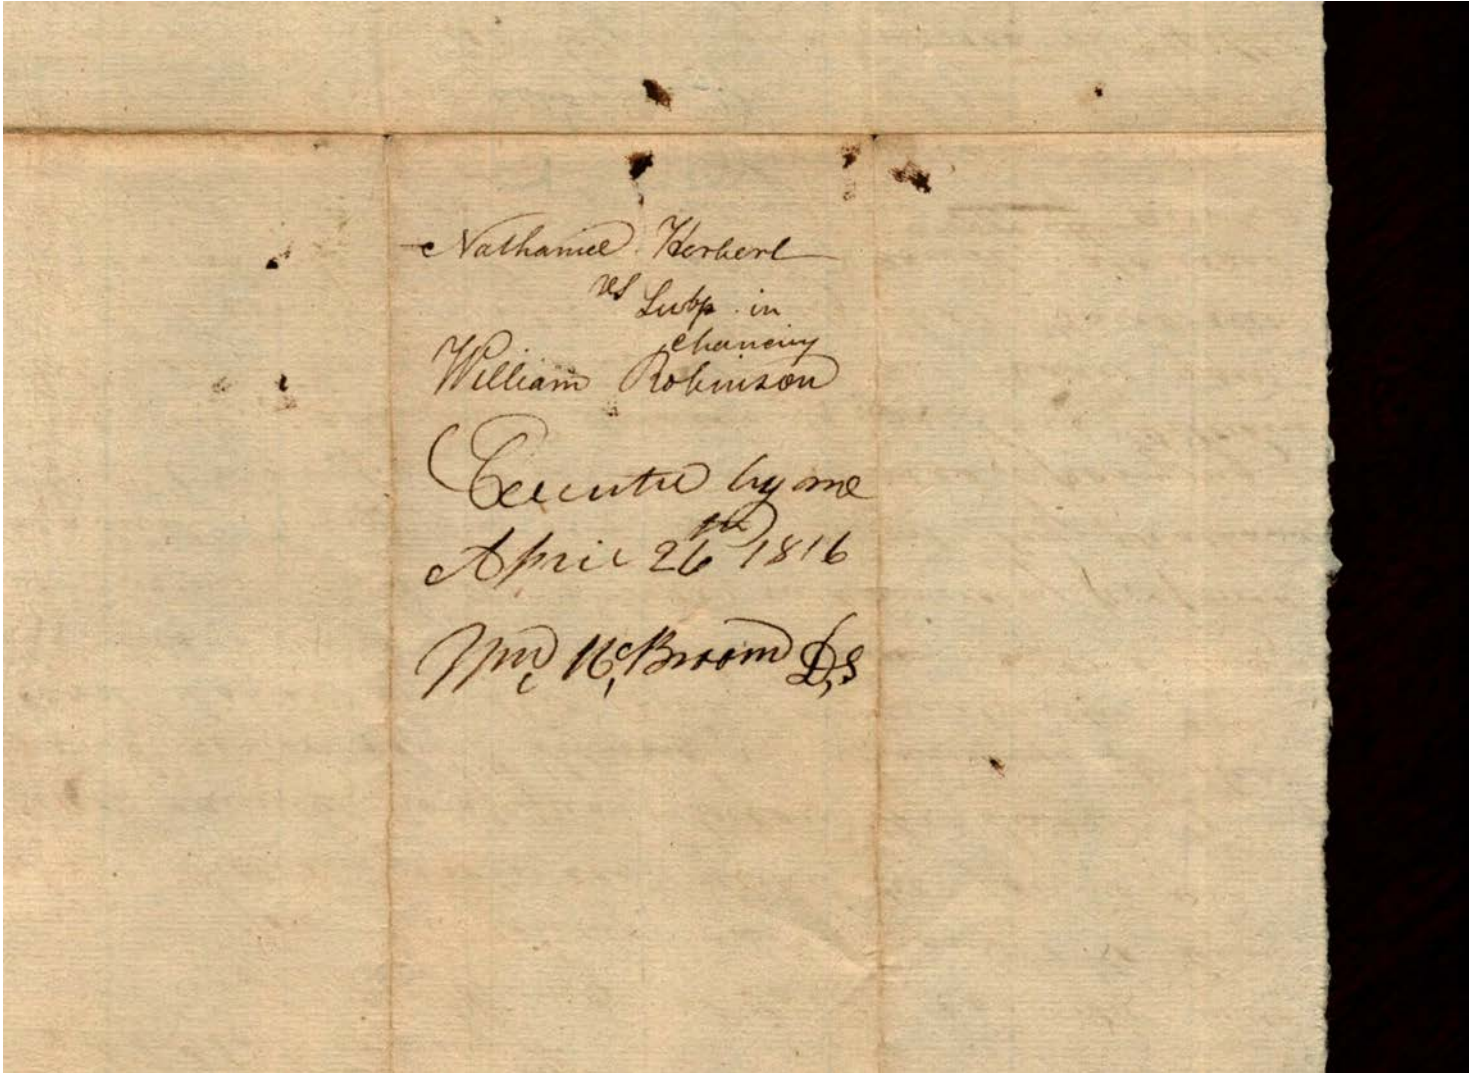 Nathaniel Herbert
vs
Subp in
Chancery
William Robinson
Executed by me
April 26th 1816
Wm McBroom D,S